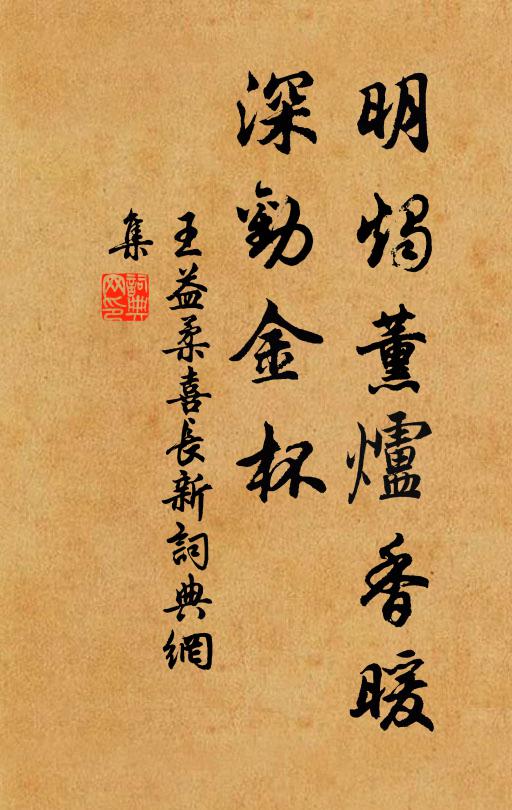 明燭薰爐香暖
深勸金杯
王益柔喜長新詞典網
集
詞典
网印